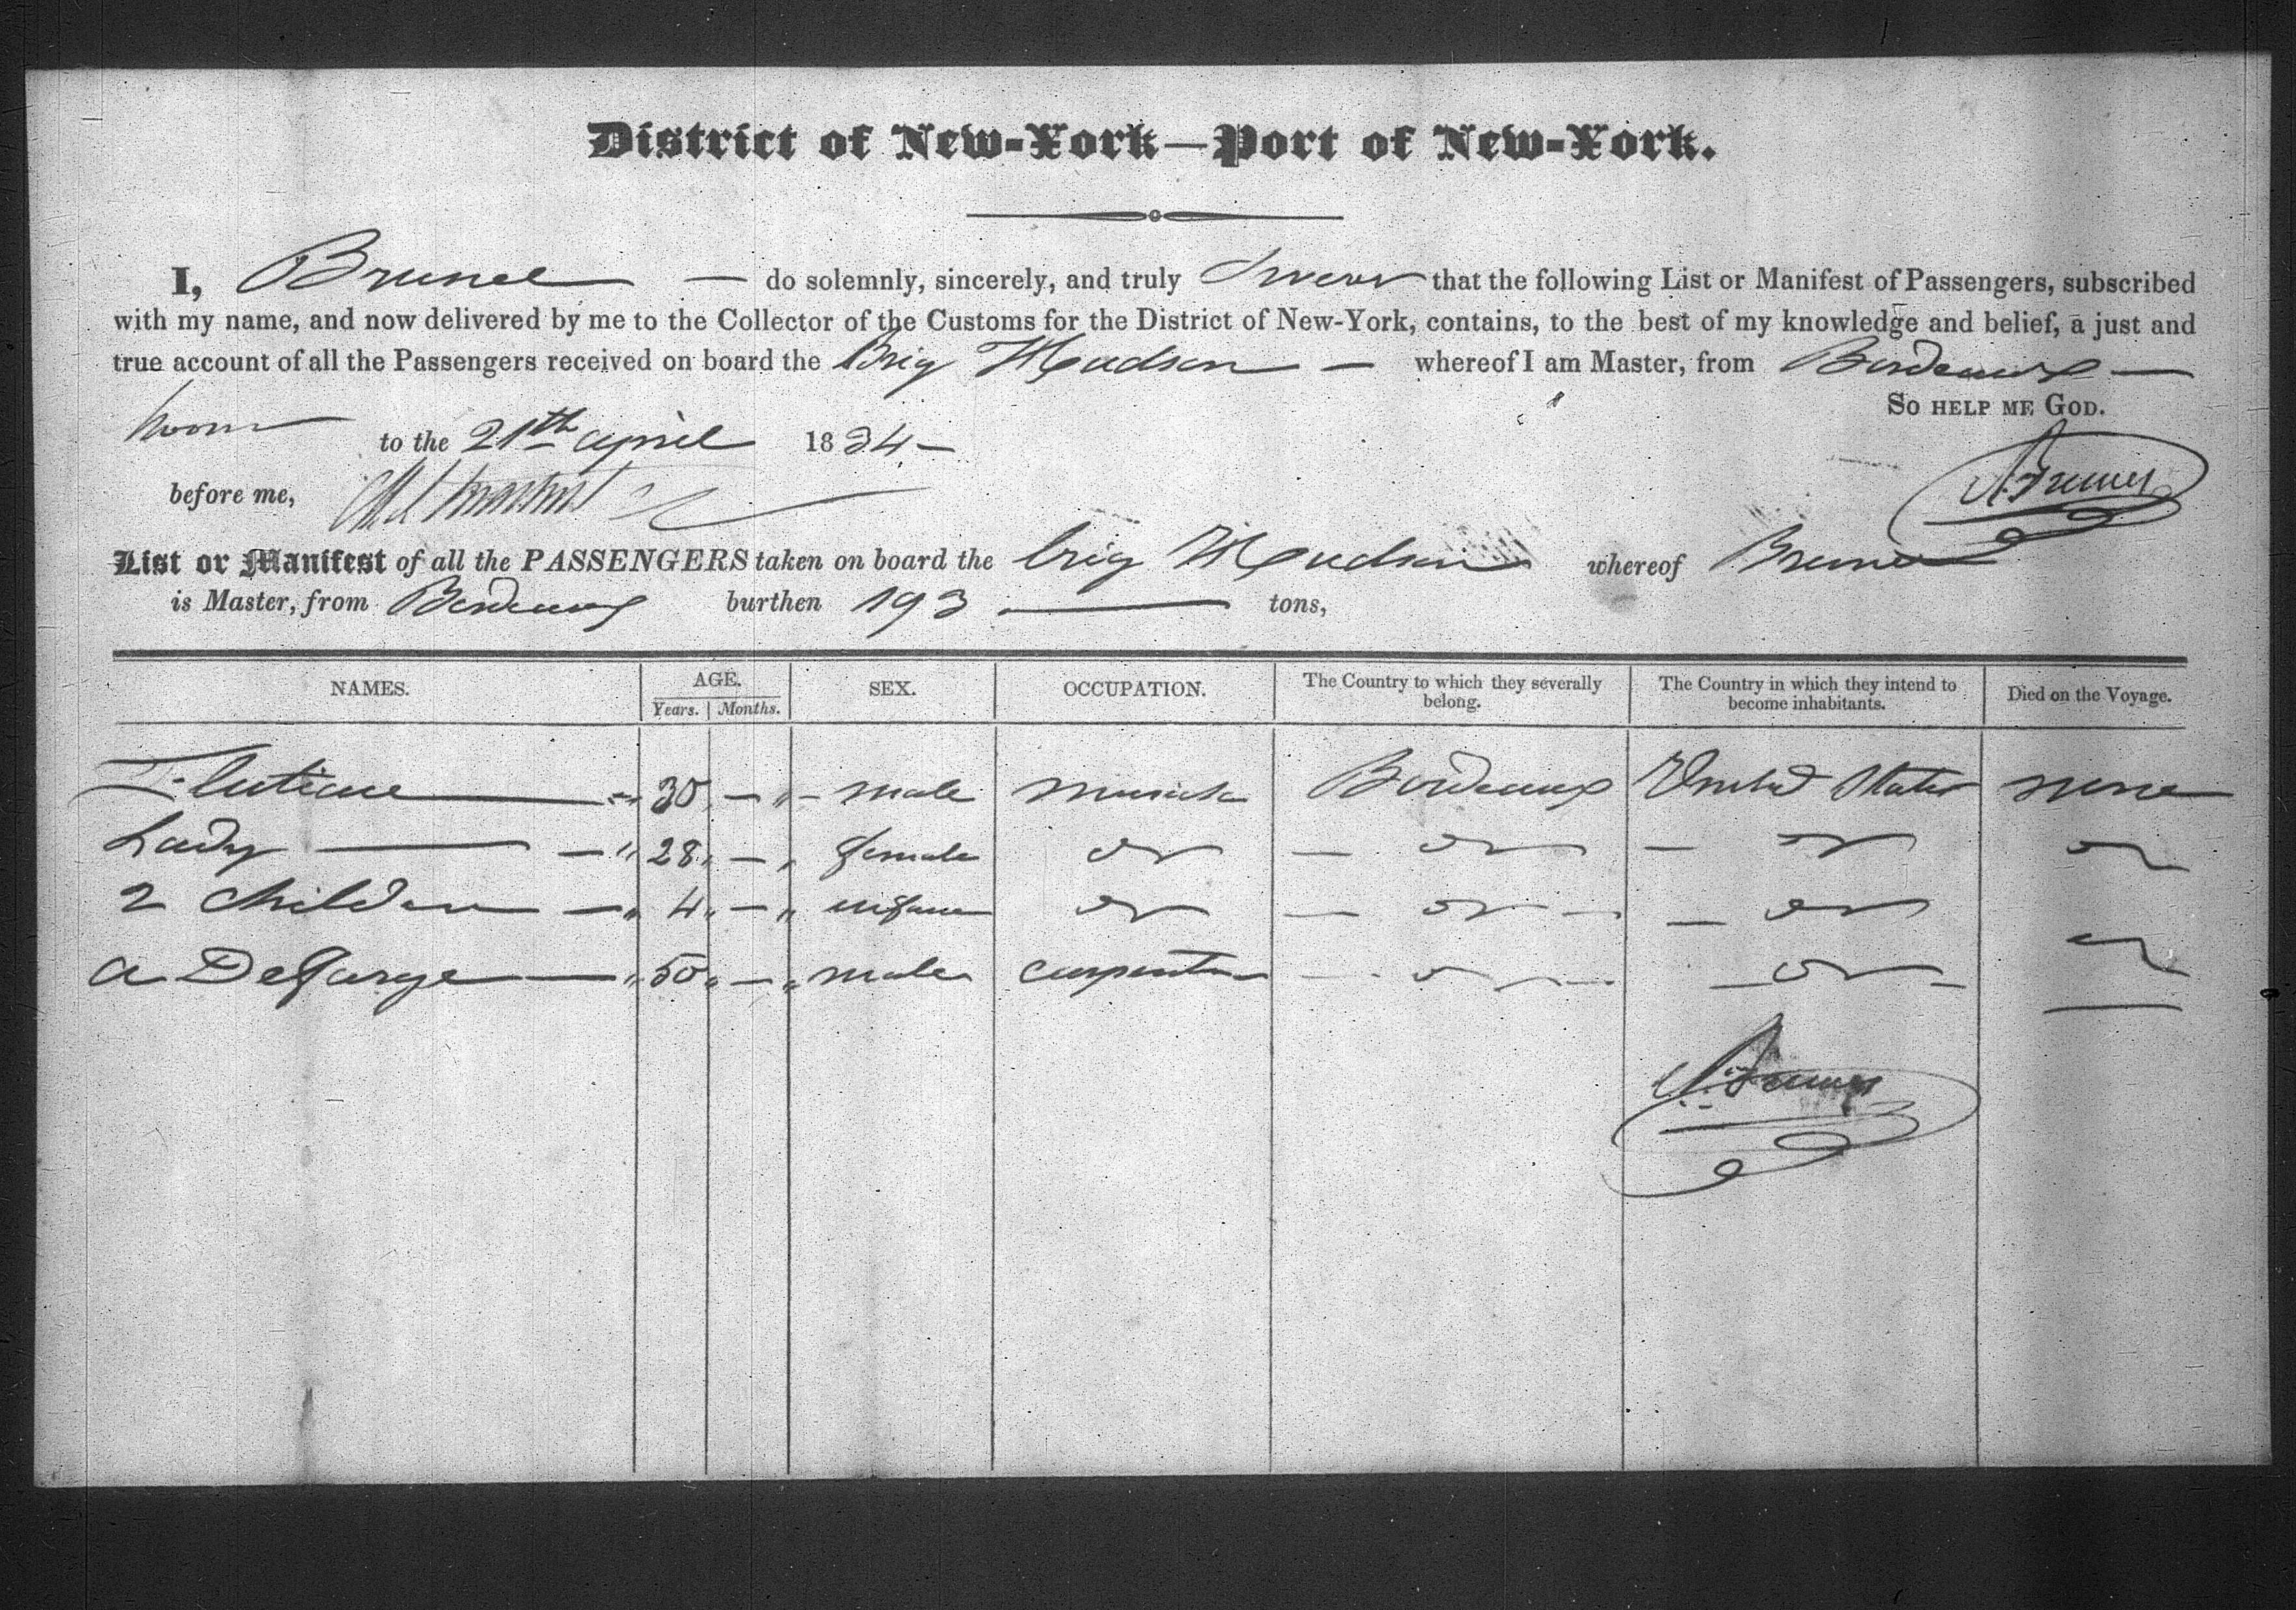 District of New-York—Port of New-York.
I, Brunel — do solemnly, sincerely, and truly Swear that the following List or Manifest of Passengers, subscribed
with my name, and now delivered by me to the Collector of the Customs for the District of New-York, contains, to the best of my knowledge and belief, a just and
true account of all the Passengers received on board the Brig Hudson — whereof I am Master, from Bordeaux —
So help me God.
to the 21th april 1834 —
before me,
List or Manifest of all the PASSENGERS taken on board the brig Hudson whereof Brunel
is Master, from Bordeaux burthen 193 — tons,
NAMES. AGE. SEX. OCCUPATION. The Country to which they severally belong. The Country in which they intend to become inhabitants. Died on the Voyage.
Years. Months.
30 — " male Bordeaux United States none
Lady — " 28 " — " female do — do — do do
2 Children — " 4 " — " do — do — — do do
a DeGarge — " 50 " — " male carpenter — do — — do —